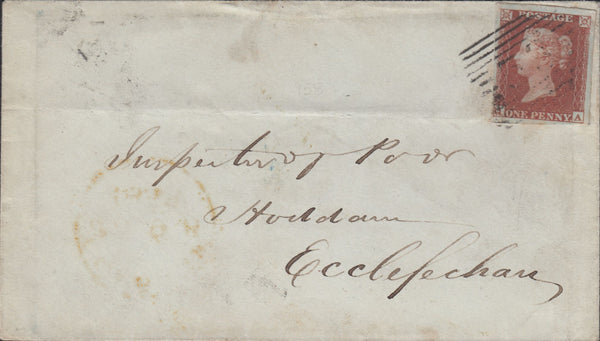 POSTAGE
ONE PENNY
A
158
Inspector of Poor
Hoddam
Ecclefechan